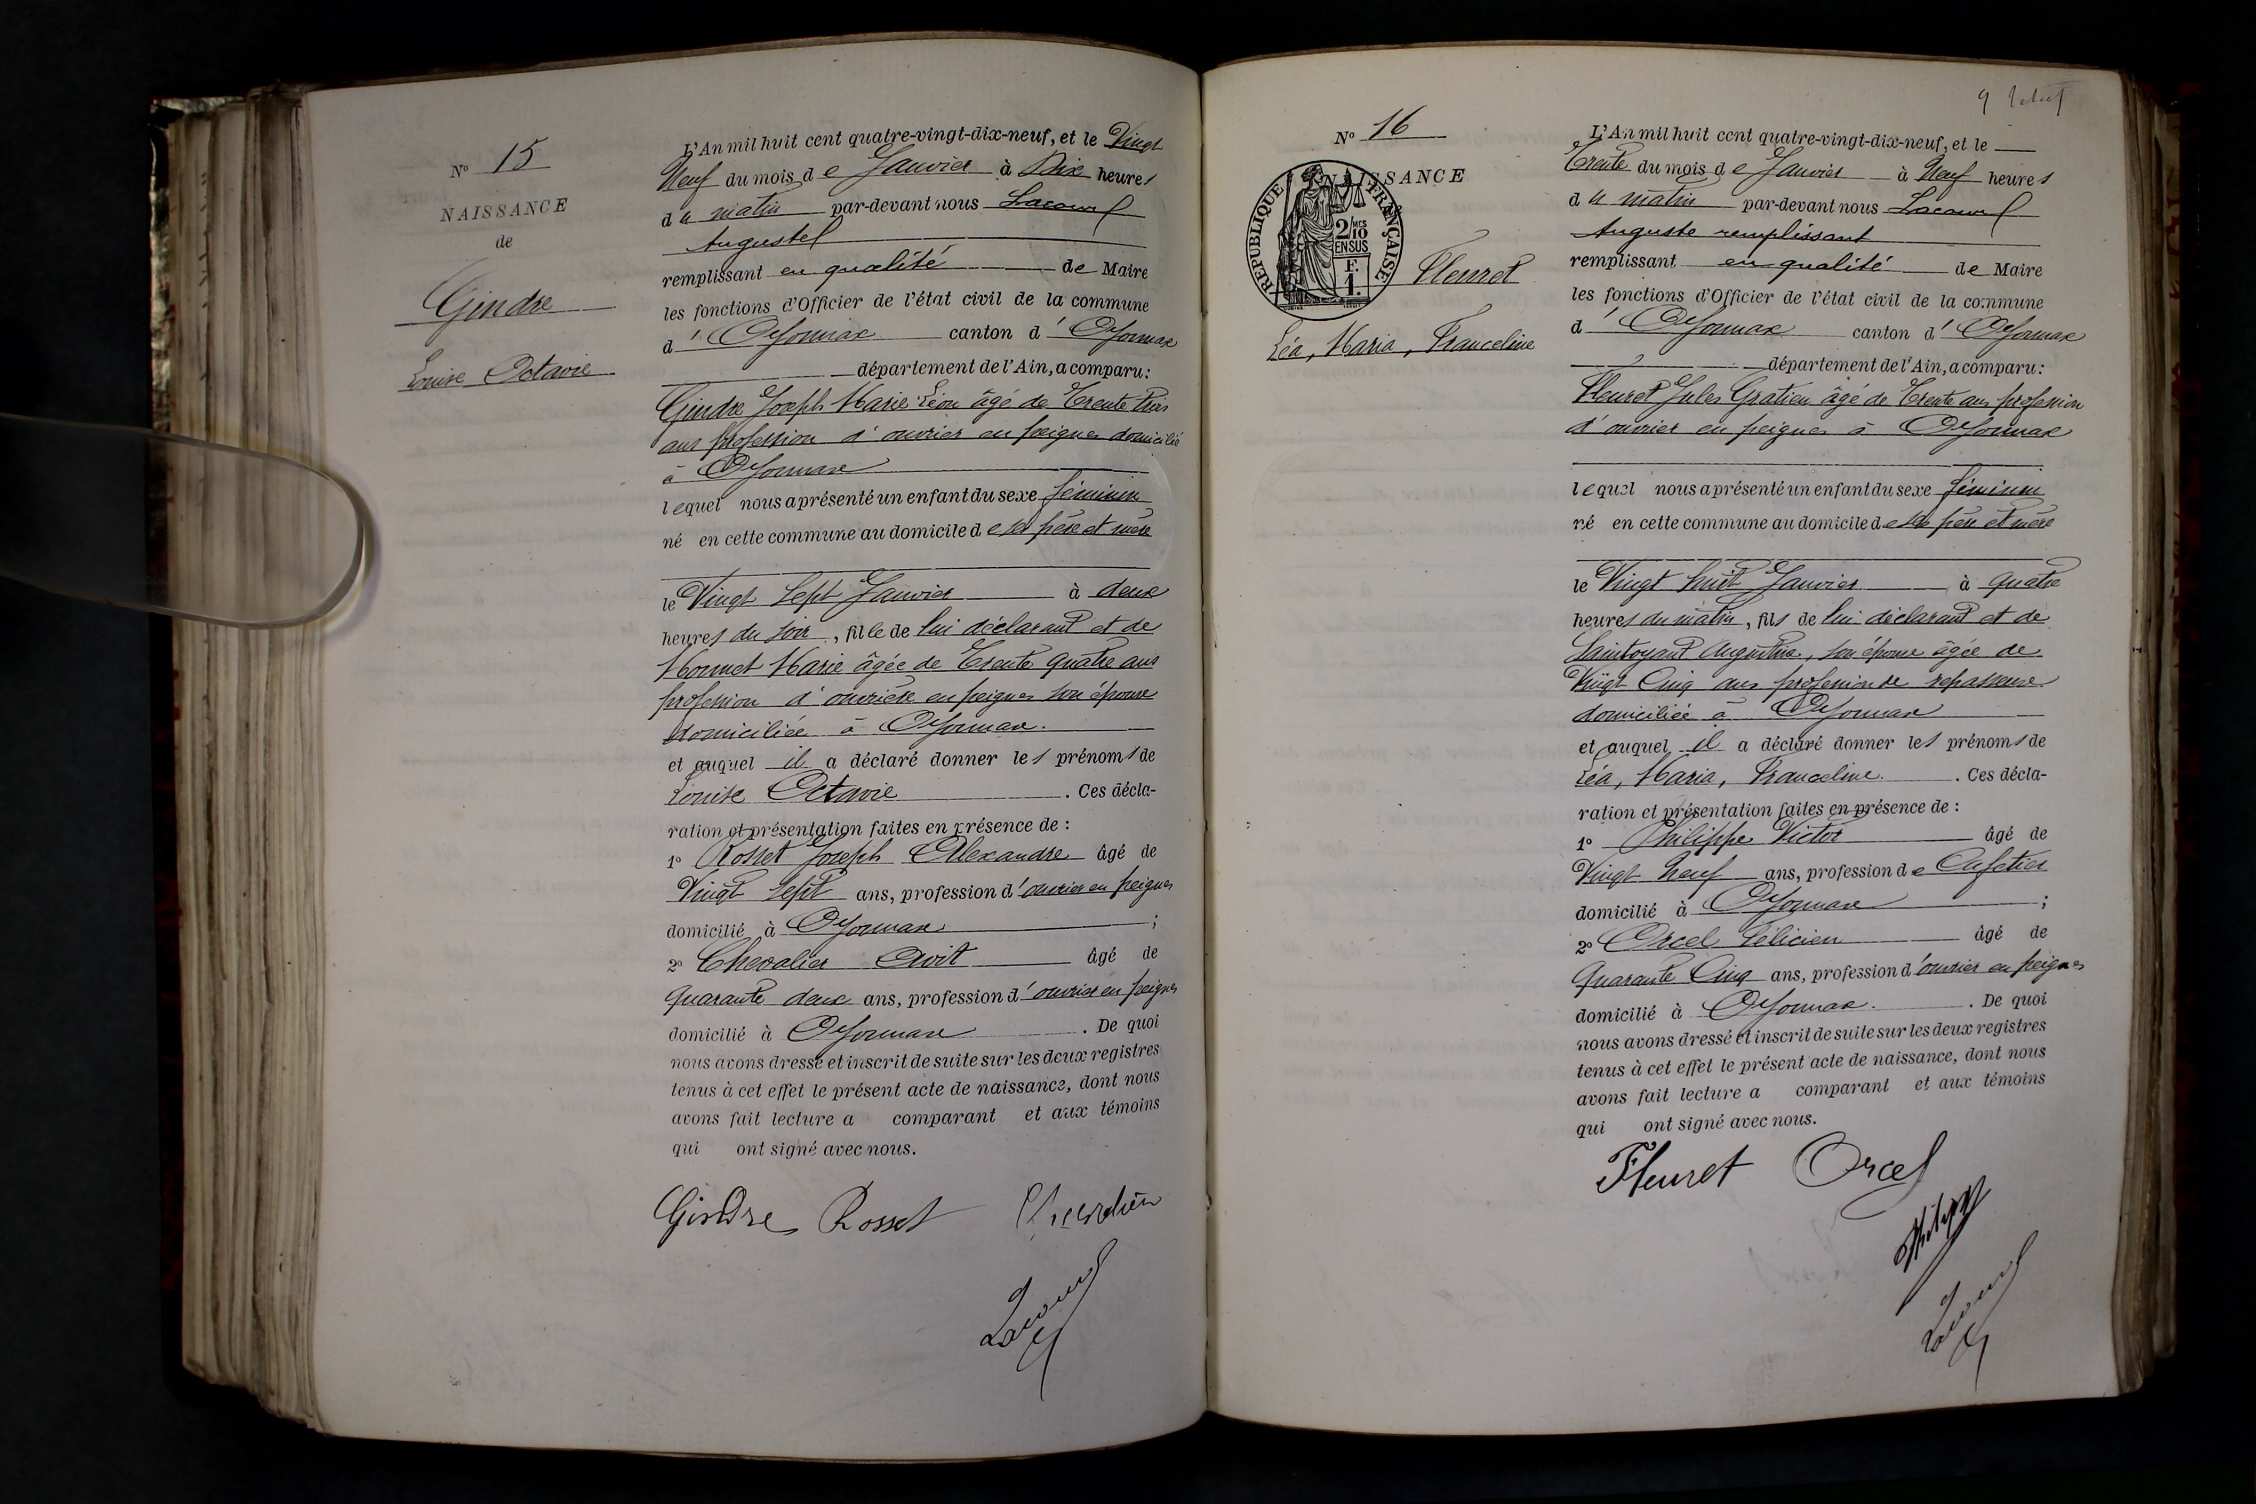 Nº 15
NAISSANCE
de
Gindre
Louise Octavie
L'An mil huit cent quatre-vingt-dix-neuf, et le Vingt
Neuf du mois de Janvier à Dix heures
du matin par-devant nous Lacour
Auguste
remplissant en qualité de Maire
les fonctions d'Officier de l'état civil de la commune
d' Oyonnax canton d' Oyonnax
département de l'Ain, a comparu :
Gindre Joseph Marie Léon âgé de Trente trois
ans profession d'ouvrier en peignes domicilié
à Oyonnax
lequel nous a présenté un enfant du sexe féminin
né en cette commune au domicile de ses père et mère
le Vingt Sept Janvier à deux
heures du soir, fille de lui déclarant et de
Monnet Marie âgée de Trente quatre ans
profession d'ouvrière en peignes son épouse
domiciliée à Oyonnax.
et auquel il a déclaré donner les prénoms de
Louise Octavie. Ces décla-
ration et présentation faites en présence de :
1º Rosset Joseph Alexandre âgé de
Vingt Sept ans, profession d'ouvrier en peignes
domicilié à Oyonnax ;
2º Chevalier Avit âgé de
quarante deux ans, profession d'ouvrier en peignes
domicilié à Oyonnax. De quoi
nous avons dressé et inscrit de suite sur les deux registres
tenus à cet effet le présent acte de naissance, dont nous
avons fait lecture a comparant et aux témoins
qui ont signé avec nous.
Gindre Rosset
Lacour
9
Nº 16
NAISSANCE
RÉPUBLIQUE FRANÇAISE
2/10 MES
EN SUS
F.
1.
Fleuret
Léa, Maria, Franceline
L'An mil huit cent quatre-vingt-dix-neuf, et le
Trente du mois de Janvier à Neuf heures
du matin par-devant nous Lacour
Auguste remplissant
remplissant en qualité de Maire
les fonctions d'Officier de l'état civil de la commune
d' Oyonnax canton d' Oyonnax
département de l'Ain, a comparu :
Fleuret Jules Gratien âgé de Trente ans profession
d'ouvrier en peignes à Oyonnax
lequel nous a présenté un enfant du sexe féminin
né en cette commune au domicile de ses père et mère
le Vingt huit Janvier à quatre
heures du matin, fils de lui déclarant et de
Saintoyant Augustine, son épouse âgée de
Vingt Cinq ans profession de repasseuse
domiciliée à Oyonnax
et auquel il a déclaré donner les prénoms de
Léa, Maria, Franceline. Ces décla-
ration et présentation faites en présence de :
1º Philippe Victor âgé de
Vingt Neuf ans, profession de Cafetier
domicilié à Oyonnax ;
2º Orcel Félicien âgé de
Quarante Cinq ans, profession d'ouvrier en peignes
domicilié à Oyonnax. De quoi
nous avons dressé et inscrit de suite sur les deux registres
tenus à cet effet le présent acte de naissance, dont nous
avons fait lecture a comparant et aux témoins
qui ont signé avec nous.
Fleuret Orcel
Philippe
Lacour